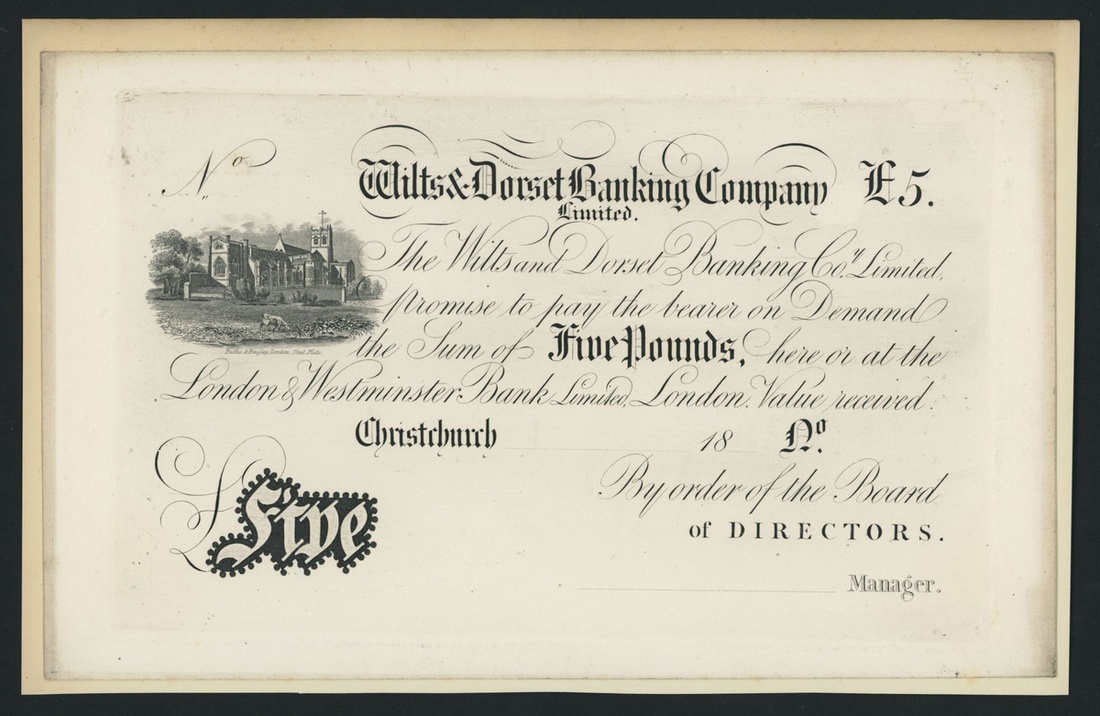 No
Wilts & Dorset Banking Company £5.
Limited.
The Wilts and Dorset Banking Coy. Limited,
promise to pay the bearer on Demand
the Sum of Five Pounds, here or at the
London & Westminster Bank Limited, London. Value received.
Christchurch 18 No.
By order of the Board
of DIRECTORS.
£Five
Manager.